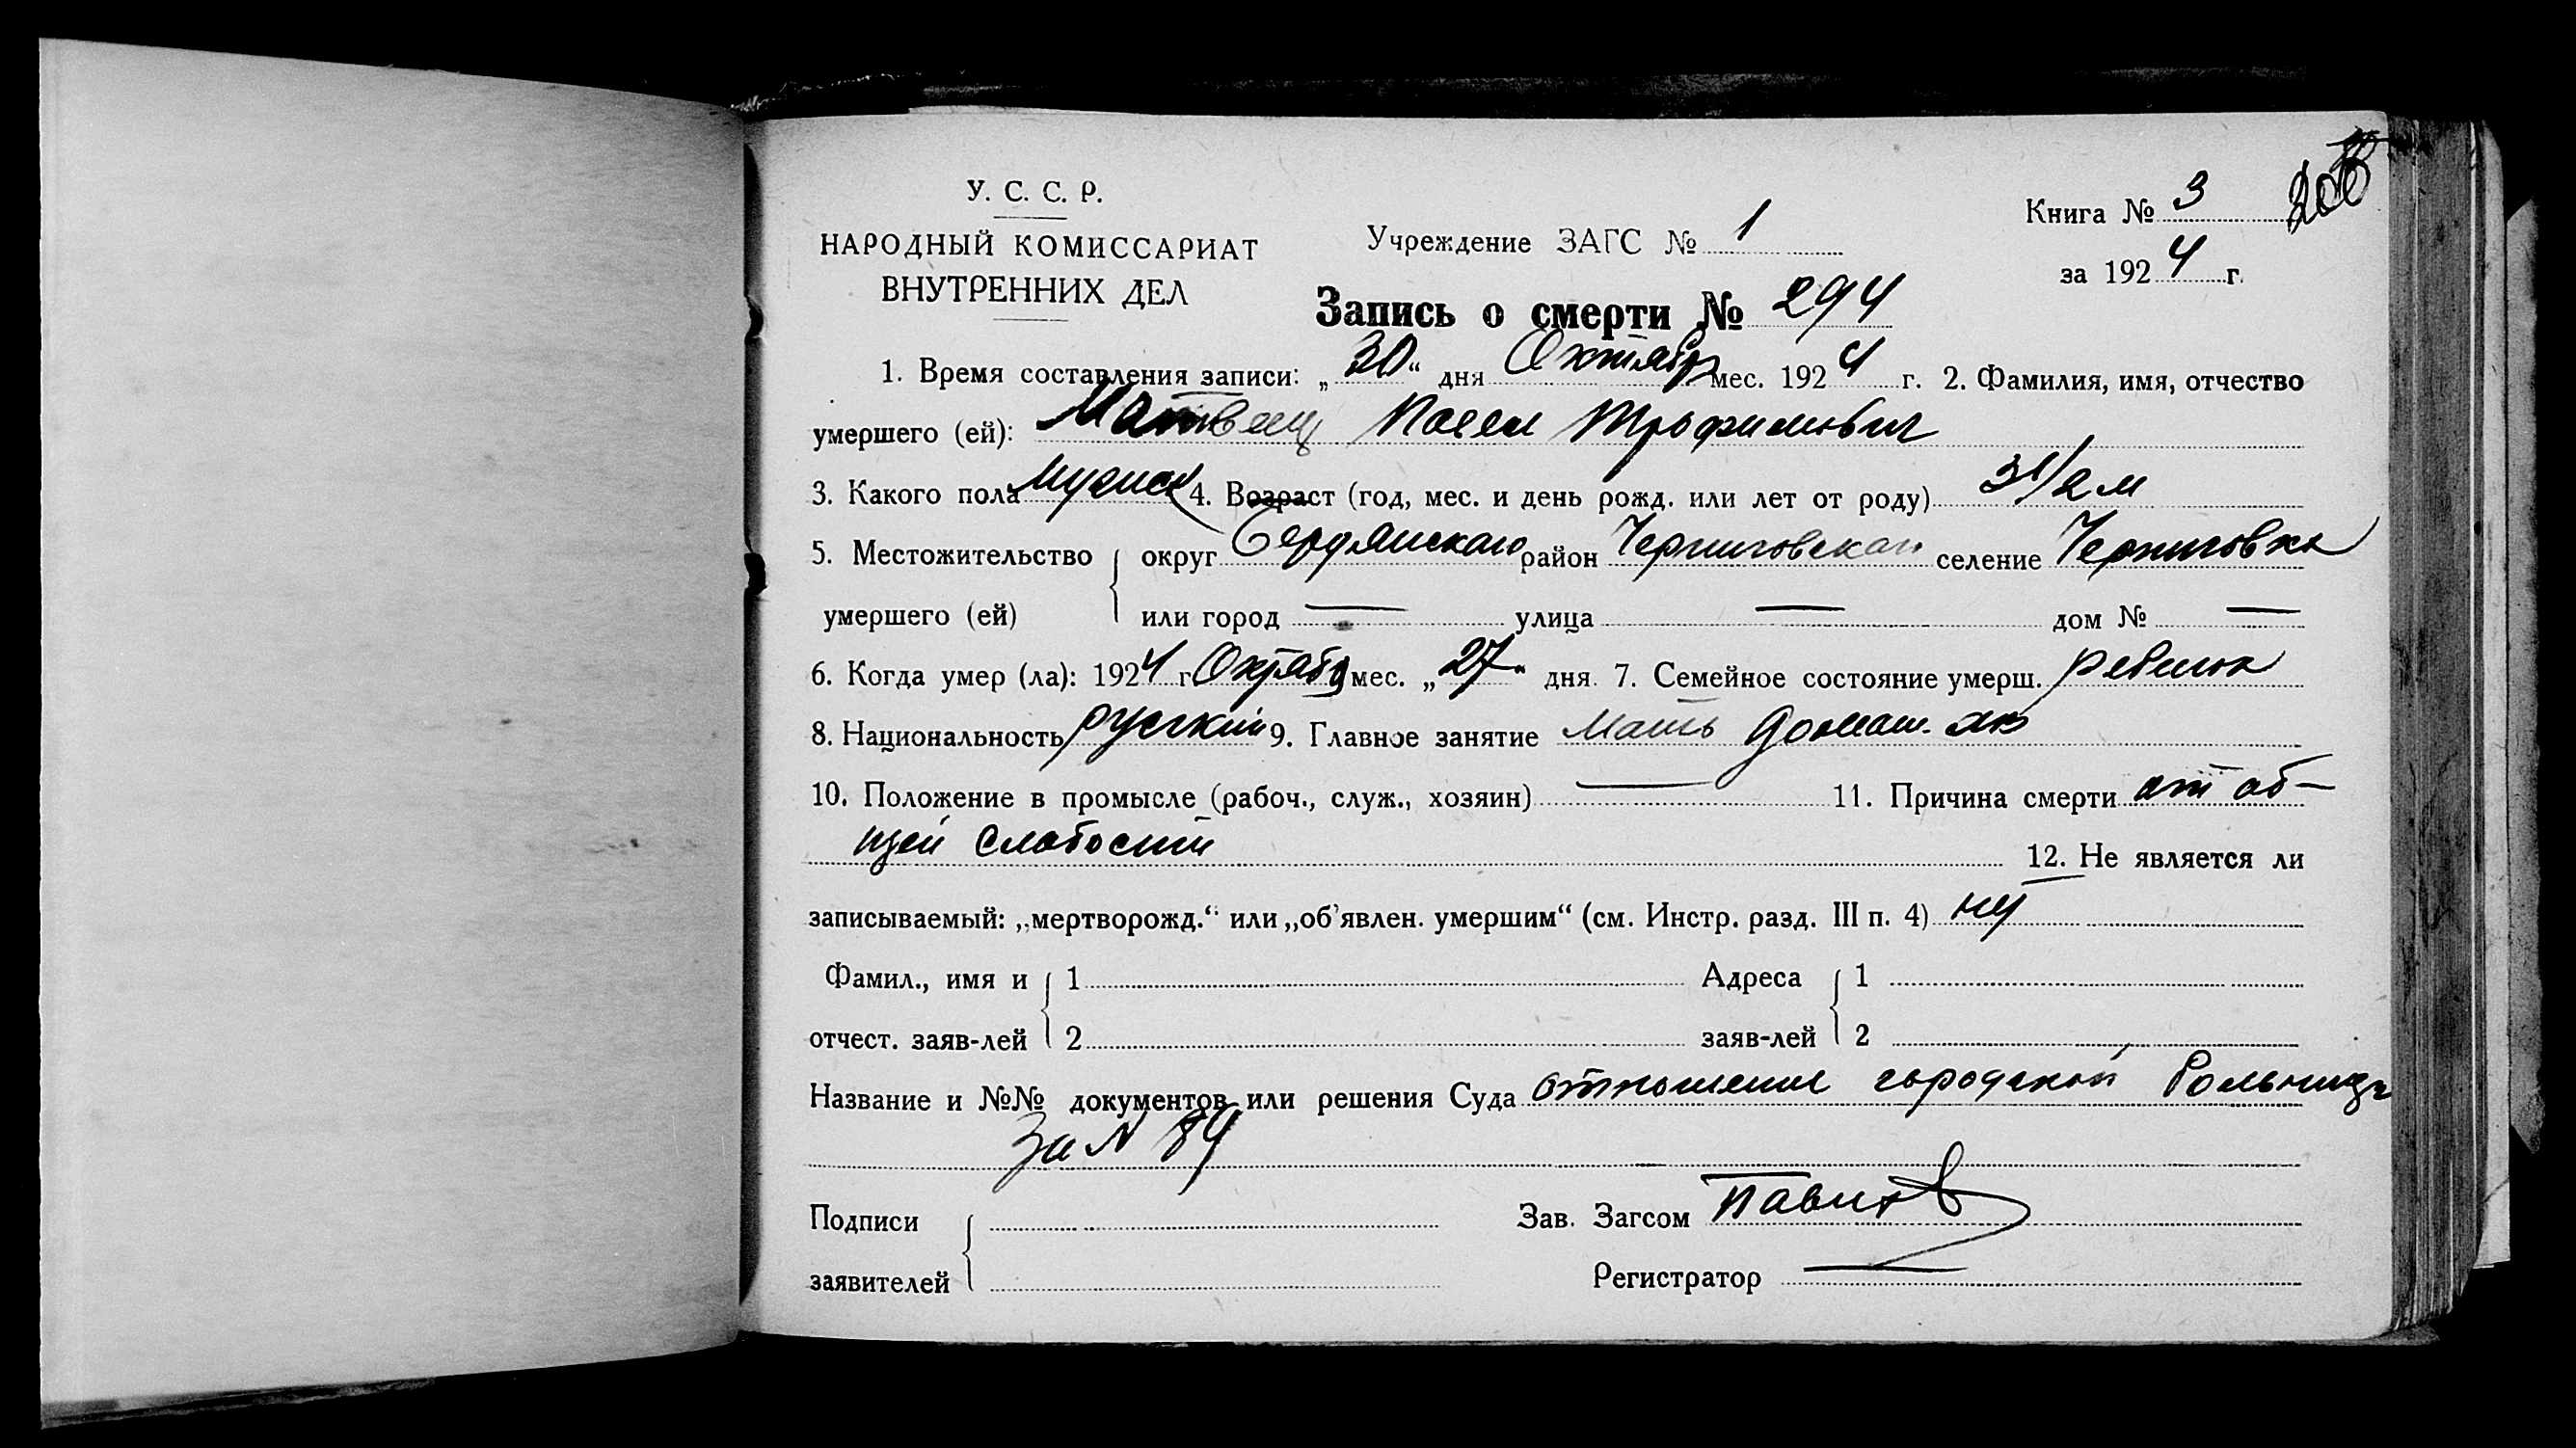 У. С. С. Р.
НАРОДНЫЙ КОМИССАРИАТ
ВНУТРЕННИХ ДЕЛ
Учреждение ЗАГС № 1
Книга № 3
за 1924 г.
Запись о смерти № 294
1. Время составления записи: „30“ дня Октябр мес. 1924 г. 2. Фамилия, имя, отчество
умершего (ей): Матвеец Павел Трофимович
3. Какого пола мужск 4. Возраст (год, мес. и день рожд. или лет от роду) 3 1/2 м
5. Местожительство округ Бердянскаго район Черниговскаго селение Черниговка
умершего (ей) или город — улица — дом № —
6. Когда умер (ла): 1924 г. Октябр мес. „27“ дня 7. Семейное состояние умерш. ребенок
8. Национальность русский 9. Главное занятие Мать домаш.
10. Положение в промысле (рабоч., служ., хозяин) — 11. Причина смерти от об-
щей слабости
12. Не является ли
записываемый: „мертворожд.“ или „об'явлен. умершим“ (см. Инстр. разд. III п. 4)
Фамил., имя и 1 Адреса 1
отчест. заяв-лей 2 заяв-лей 2
Название и №№ документов или решения Суда отношение городской больницы
за N 84
Подписи Зав. Загсом
заявителей Регистратор —